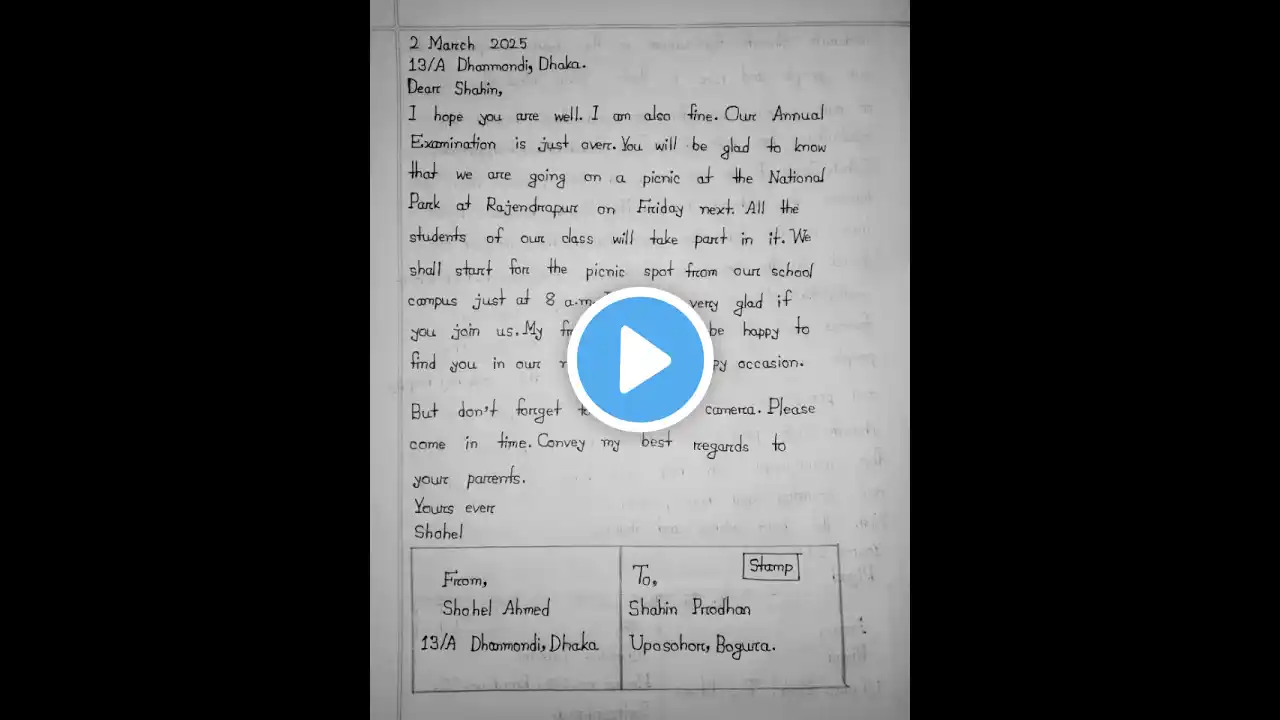 2 March 2025
13/A Dhanmondi, Dhaka.
Dear Shahin,
I hope you are well. I am also fine. Our Annual
Examination is just over. You will be glad to know
that we are going on a picnic at the National
Park at Rajendrapur on Friday next. All the
students of our class will take part in it. We
shall start for the picnic spot from our school
campus just at 8 a.m. very glad if
you join us. My be happy to
find you in our occasion.
But don't forget camera. Please
come in time. Convey my best regards to
your parents.
Yours ever
Shohel
From,
Shohel Ahmed
13/A Dhanmondi, Dhaka
Stamp
To,
Shahin Prodhan
Uposohor, Bogura.